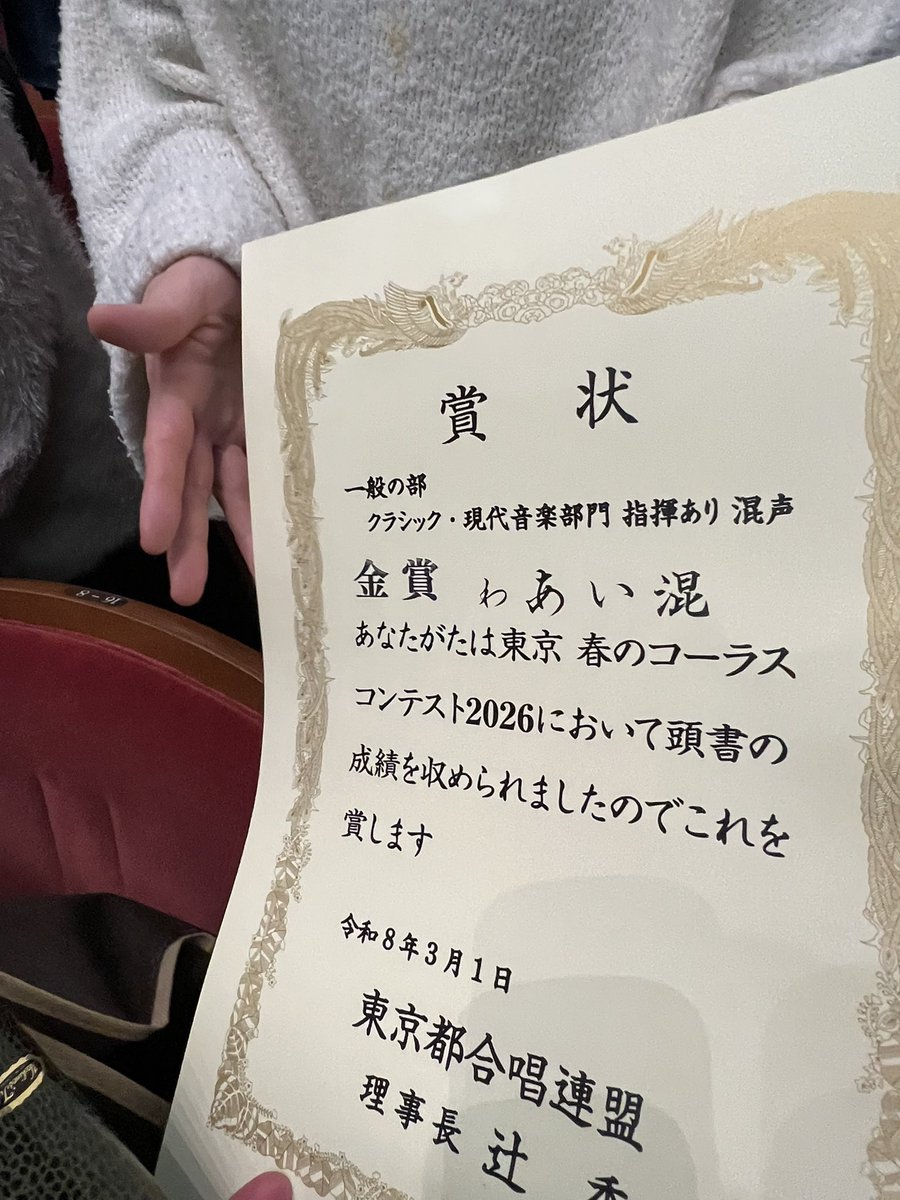 賞状
一般の部
クラシック・現代音楽部門 指揮あり 混声
金賞 わあい混
あなたがたは東京 春のコーラス
コンテスト2026において頭書の
成績を収められましたのでこれを
賞します
令和8年3月1日
東京都合唱連盟
理事長 辻 秀
16-8